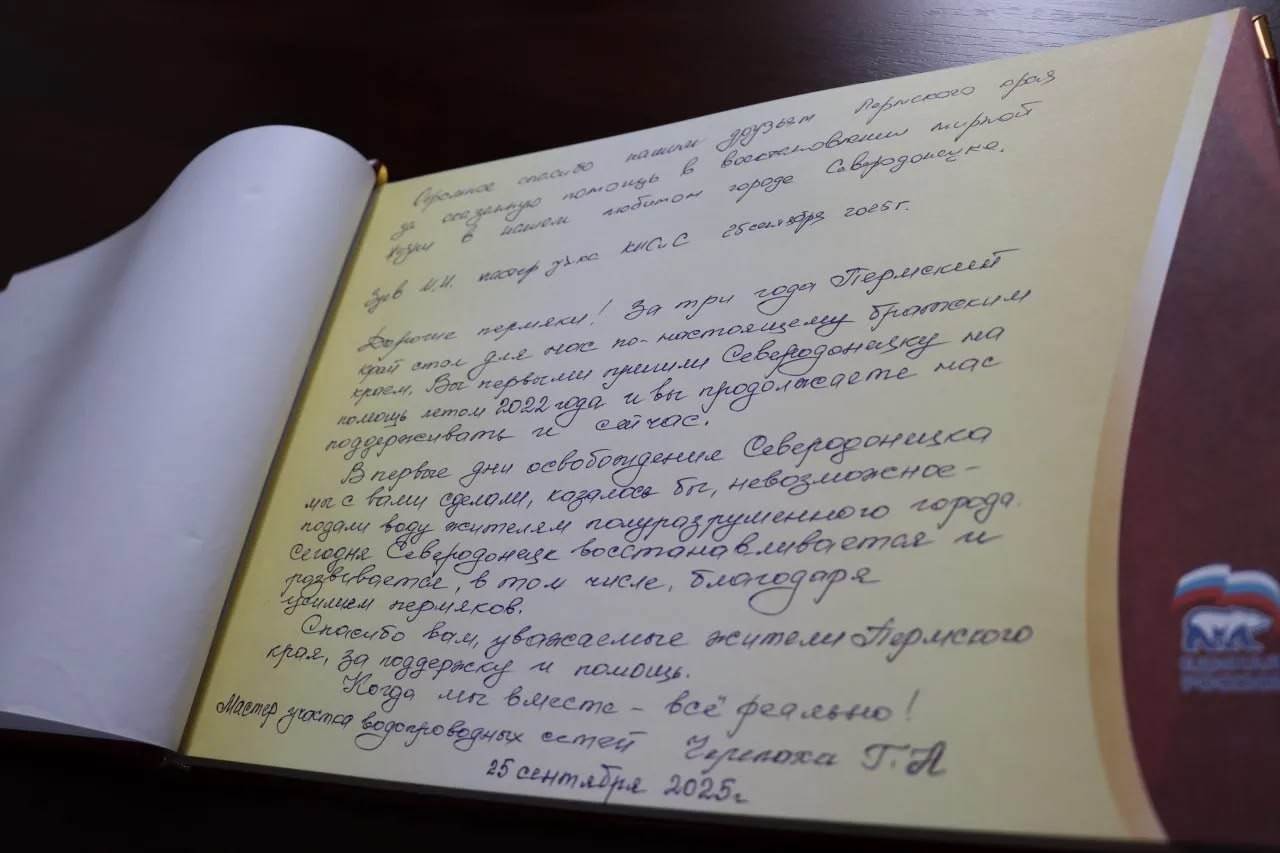 Огромное спасибо нашим друзьям Пермского края
за оказанную помощь в восстановлении мирной
жизни в нашем любимом городе Северодонецке.
М.И. мастер уч-ка 25 сентября 2025 г.
Дорогие пермяки! За три года Пермский
край стал для нас по-настоящему братским
краем. Вы первыми пришли Северодонецку на
помощь летом 2022 года и вы продолжаете нас
поддерживать и сейчас.
В первые дни освобождения Северодонецка
мы с вами сделали, казалось бы, невозможное -
подали воду жителям полуразрушенного города.
Сегодня Северодонецк восстанавливается и
развивается, в том числе, благодаря
усилиям пермяков.
Спасибо вам, уважаемые жители Пермского
края, за поддержку и помощь.
Когда мы вместе - всё реально!
Мастер участка водопроводных сетей Черепаха Г.А
25 сентября 2025г
ЕДИНАЯ
РОССИЯ